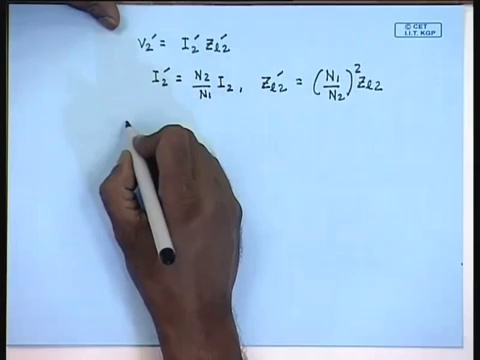 © CET
I.I.T. KGP
V₂′ = I₂′ Zₗ₂′
I₂′ = N₂/N₁ I₂, Zₗ₂′ = (N₁/N₂)² Zₗ₂